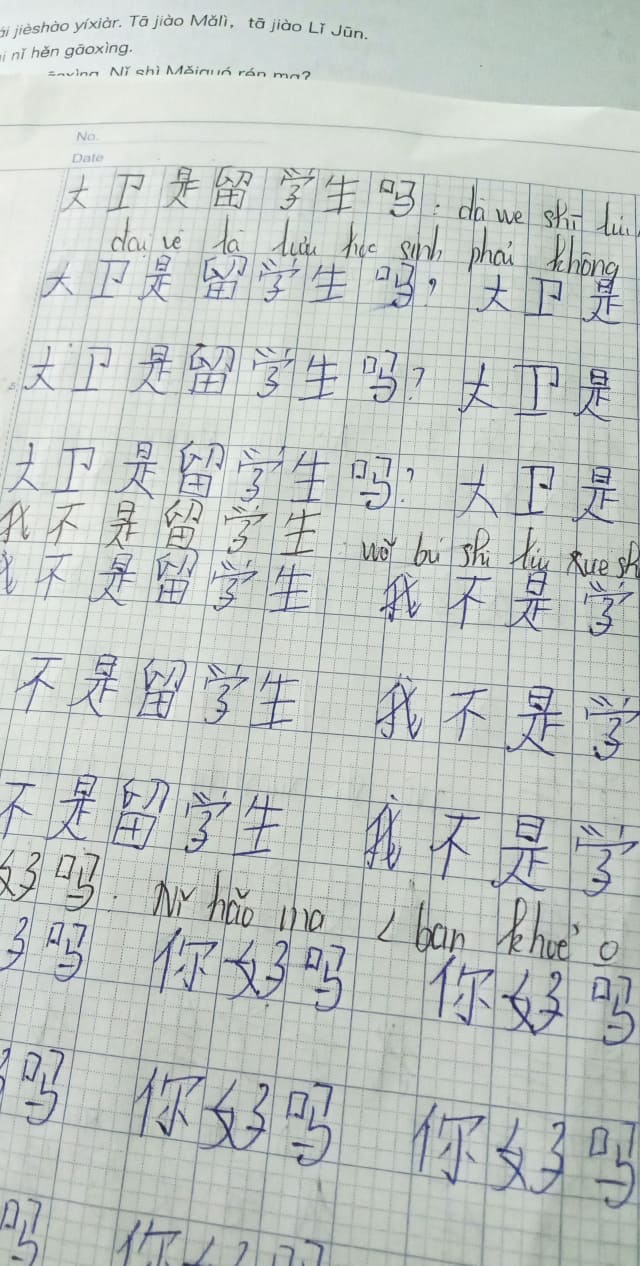 jièshào yíxiàr. Tā jiào Mǎlì, tā jiào Lǐ Jūn.
nǐ hěn gāoxìng.
Nǐ shì Měiguó rén ma?
No.
Date
大卫是留学生吗: da we shī liu
dai vē là lưu học sinh phải không
大卫是留学生吗? 大卫是
大卫是留学生吗? 大卫是
大卫是留学生吗? 大卫是
我不是留学生: wǒ bú shi liu xue sh
我不是留学生 我不是学
不是留学生 我不是学
不是留学生 我不是学
好吗: Nǐ hǎo ma < bạn khoẻ o
好吗 你好吗 你好吗
吗 你好吗 你好吗
吗 你好吗